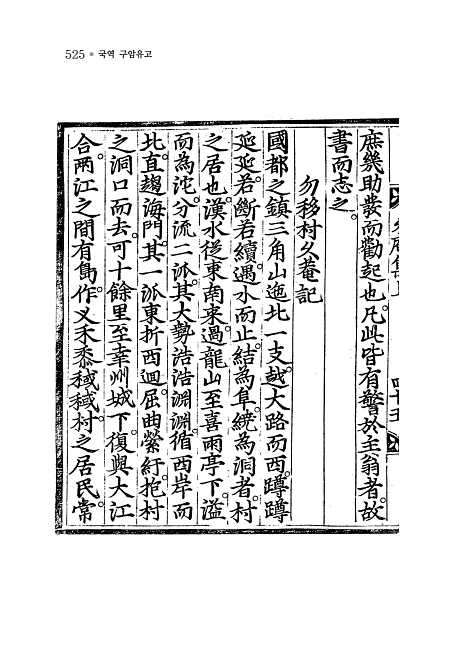 525 • 국역 구암유고
庶幾助發而勸起也。凡此皆有警於主翁者。故
書而志之。
勿移村久菴記
國都之鎭三角山迤北一支。越大路而西蹲蹲
延延。若斷若續。遇水而止。結爲阜。繞爲洞者。村
之居也。漢水從東南來。過龍山至喜雨亭下。溢
而為沱。分流二派。其大勢浩浩淵淵。循西岸而
北。直趨海門。其一派東折西迴。屈曲縈紆。抱村
之洞口而去。可十餘里。至幸州城下。復與大江
合。兩江之間有島。作乂禾黍穊穊。村之居民。常
四十五